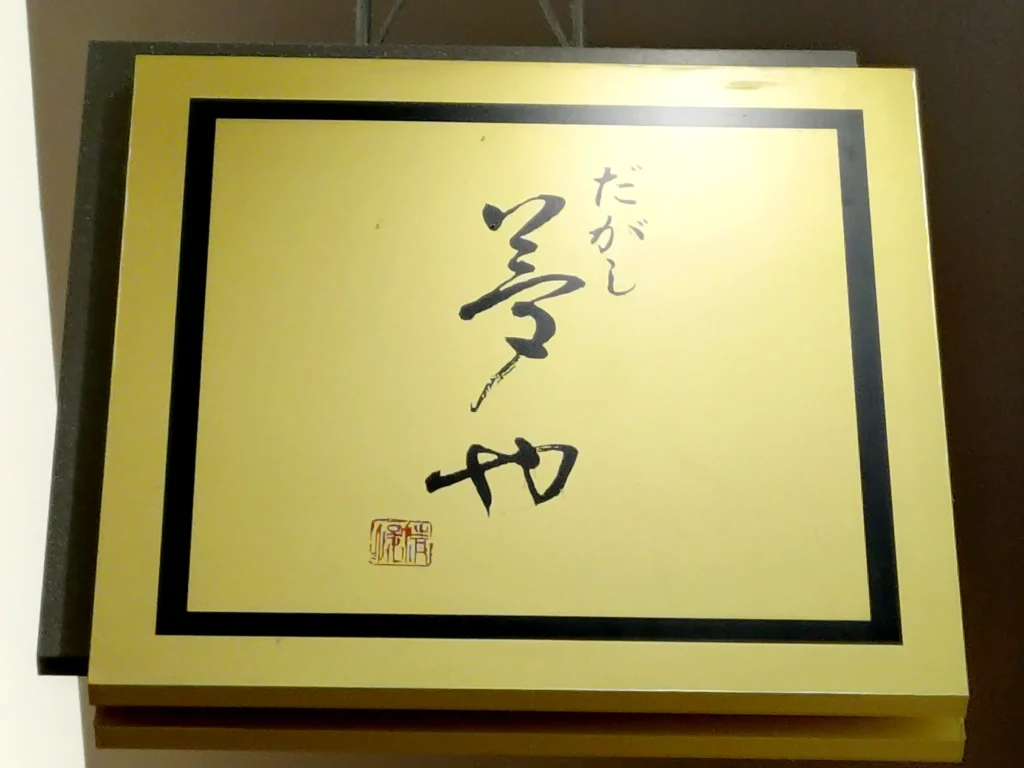 だがし
夢や